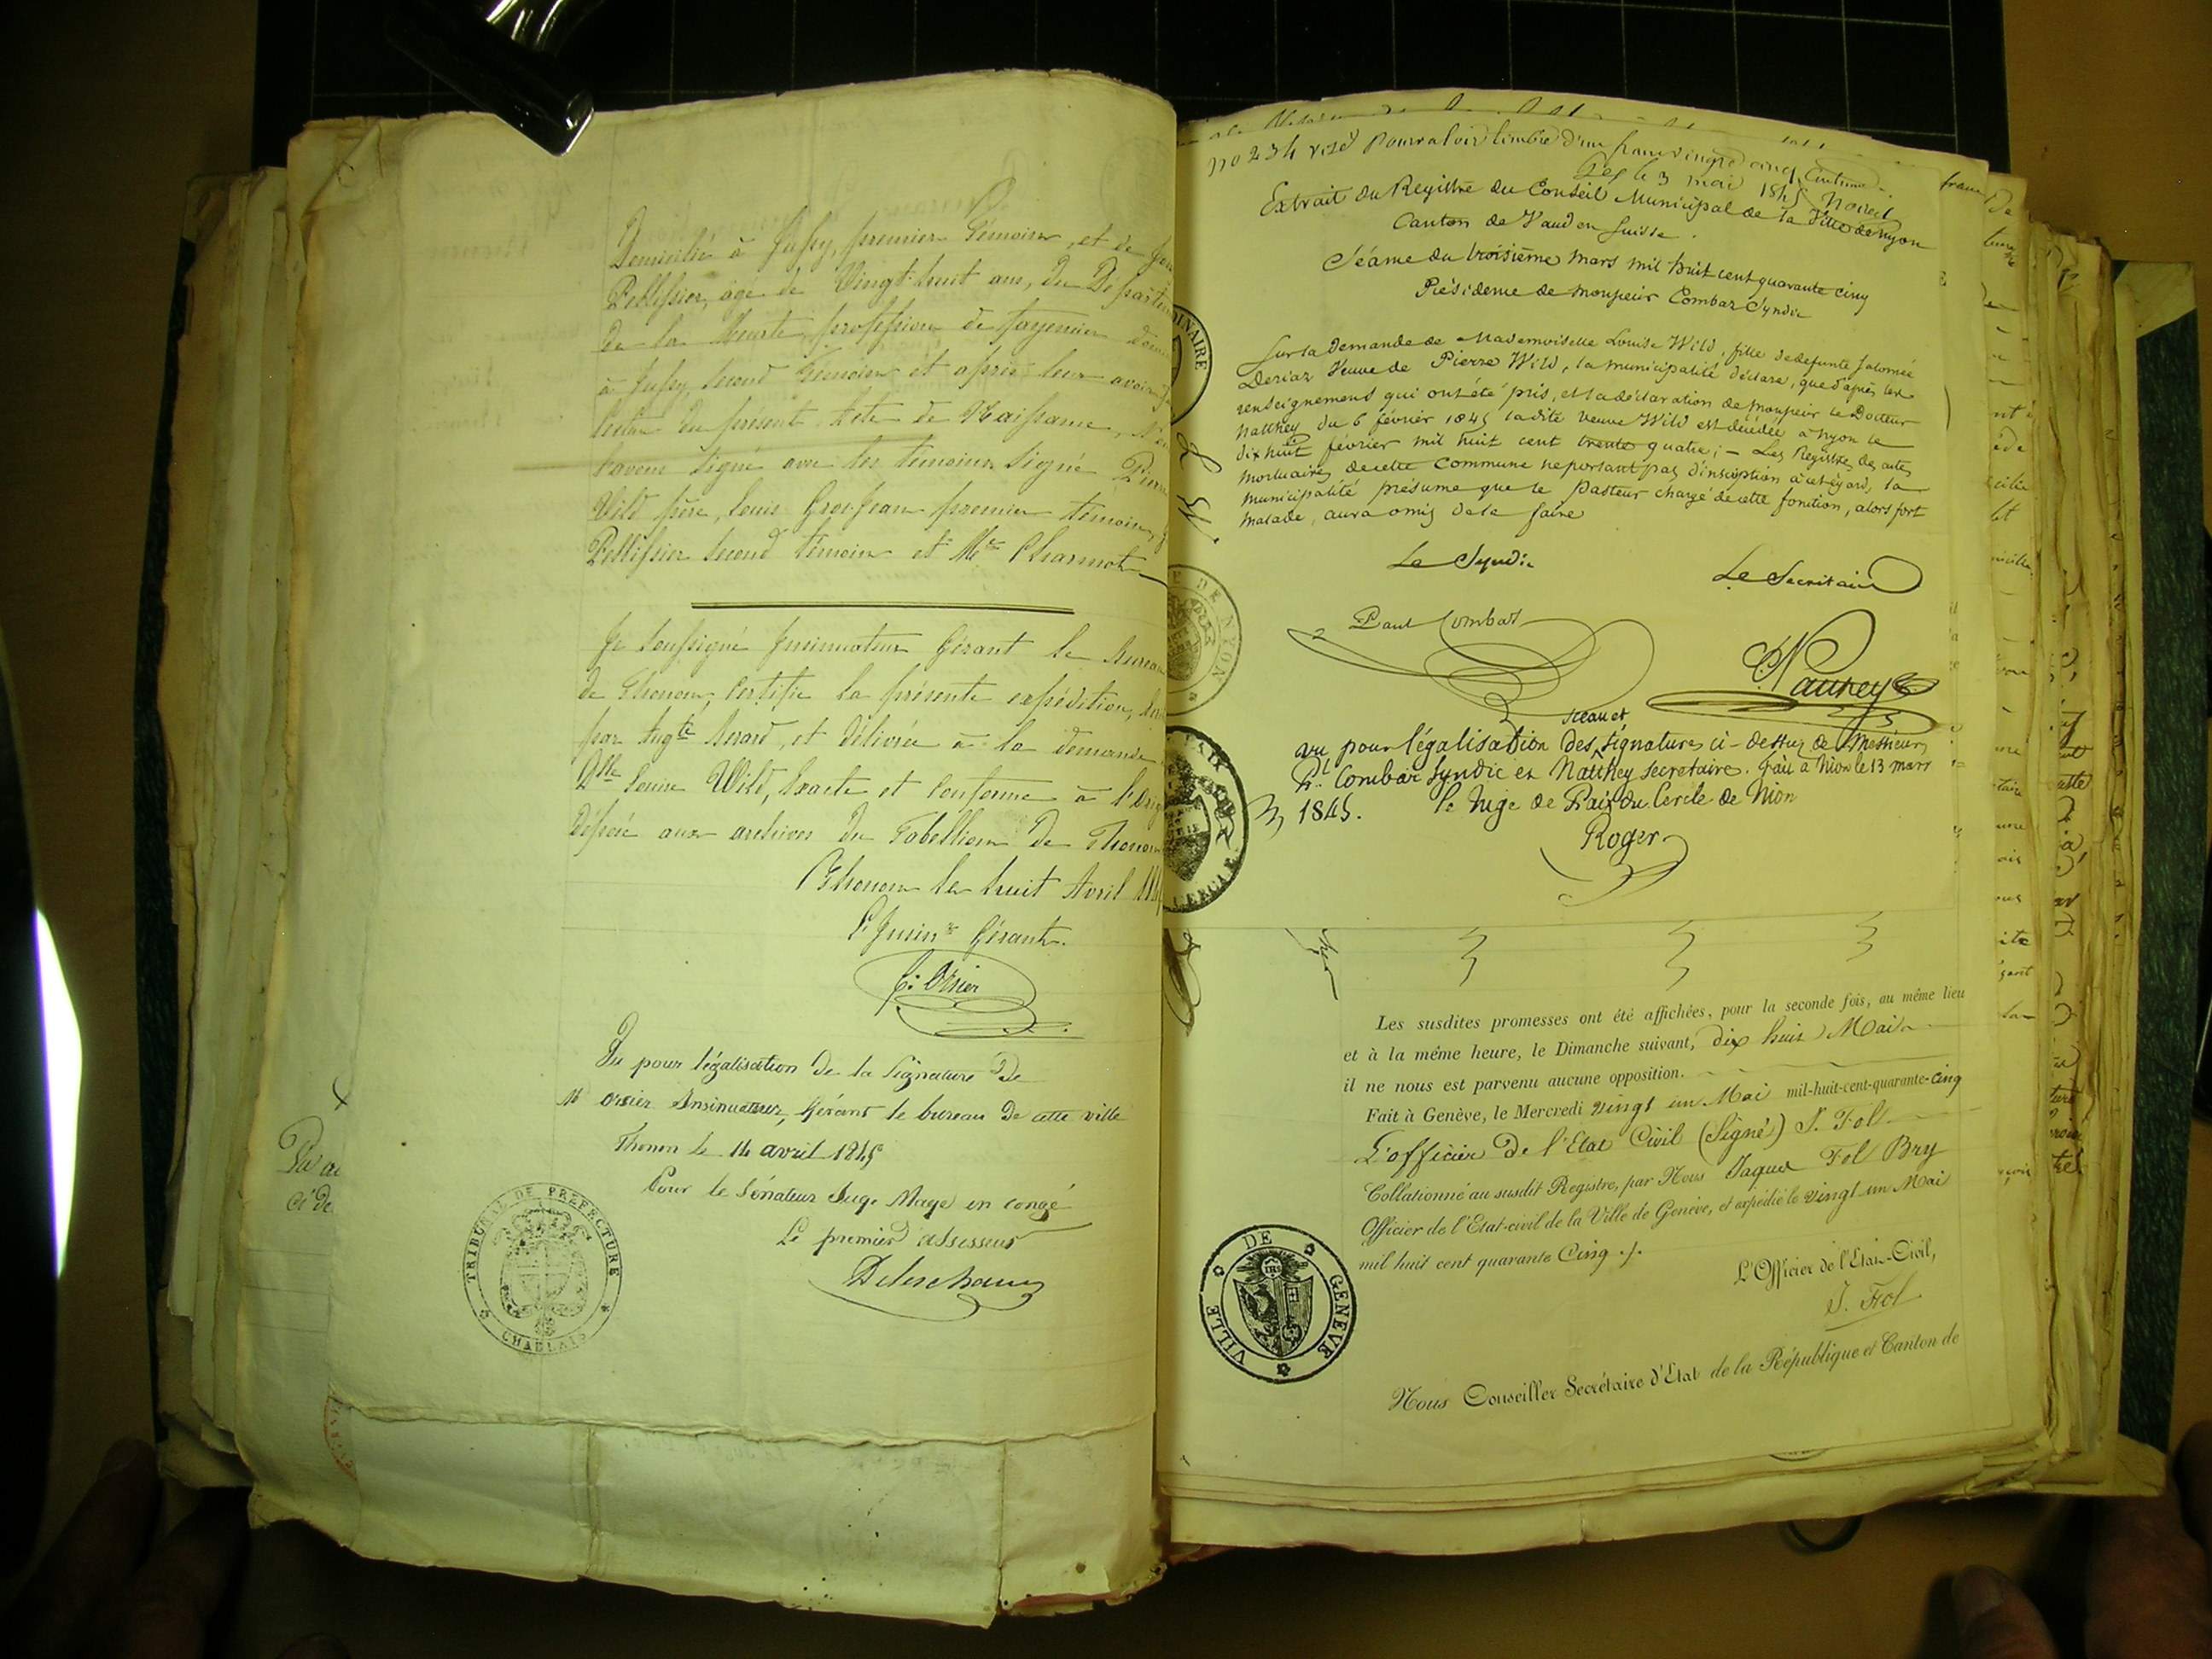 Domicilié à Jussy, premier Témoin, et de
Pellissier, âgé de Vingt-huit ans, du Départem
de la Meurte, profession de fayencier
à Jussy, second Témoin et après leur avoir
lecture du présent Acte de Naissance,
l'avons signé avec les témoins signé Pierre
Wild père, Louis Grosjean premier témoin,
Pellissier second témoin et Charmot
Je soussigné Insinuateur Gérant le Bureau
de Thonon, Certifie la présente expédition,
par et délivrée à la demande
Dlle Louise Wild, Exacte et Conforme à l'Orig
déposé aux archives du Tabellion de Thonon
Thonon le huit Avril
L'Insinr Gérant.
Orsier
Vu pour légalisation de la signature de
Mr Orsier Insinuateur, Gérant le bureau de cette ville
Thonon le 14 avril 1845
Pour le Sénateur Juge Mage en congé
Le premier assesseur
Deleschaux
TRIBUNAL DE PREFECTURE
CHABLAIS
No 234 visé Pour valoir timbre d'un franc vingt cinq Centimes.
Gex le 3 mai 1845
Extrait du Registre du Conseil Municipal de la Ville de Nyon
Canton de Vaud en Suisse.
Séance du troisième mars mil huit cent quarante cinq
Présidence de monsieur Combaz Syndic
Sur la demande de Mademoiselle Louise Wild, fille de defunte Salomée
Deriaz Veuve de Pierre Wild, la municipalité déclare, que d'après les
renseignements qui ont été pris, et la déclaration de monsieur le Docteur
Natthey du 6 février 1845 ladite veuve Wild est décédée à Nyon le
dix huit février mil huit cent trente quatre; – Les Registres des actes
mortuaires de cette Commune ne portant pas d'inscription à cet égard, la
municipalité présume que le Pasteur chargé de cette fonction, alors fort
malade, aura omis de le faire
Le Syndic
Le Secretaire
Paul Combaz
Natthey
sceau et
vu pour légalisation des signatures ci-dessus de Messieurs
Pl. Combaz Syndic et Natthey secretaire. Fait à Nion le 13 mars
1845. Le Juge de Paix du Cercle de Nion
Roger
DE NYON
Les susdites promesses ont été affichées, pour la seconde fois, au même lieu
et à la même heure, le Dimanche suivant, dix huit Mai
il ne nous est parvenu aucune opposition.
Fait à Genève, le Mercredi vingt un Mai mil-huit-cent-quarante-cinq
L'officier de l'Etat Civil (Signé) J. Fol
Collationné au susdit Registre, par Nous Jaques Fol Bry
Officier de l'Etat-civil de la Ville de Genève, et expédié le vingt un Mai
mil huit cent quarante Cinq ./.
L'Officier de l'Etat-Civil,
J. Fol
VILLE DE GENEVE
IHS
Nous Conseiller Secrétaire d'Etat de la République et Canton de